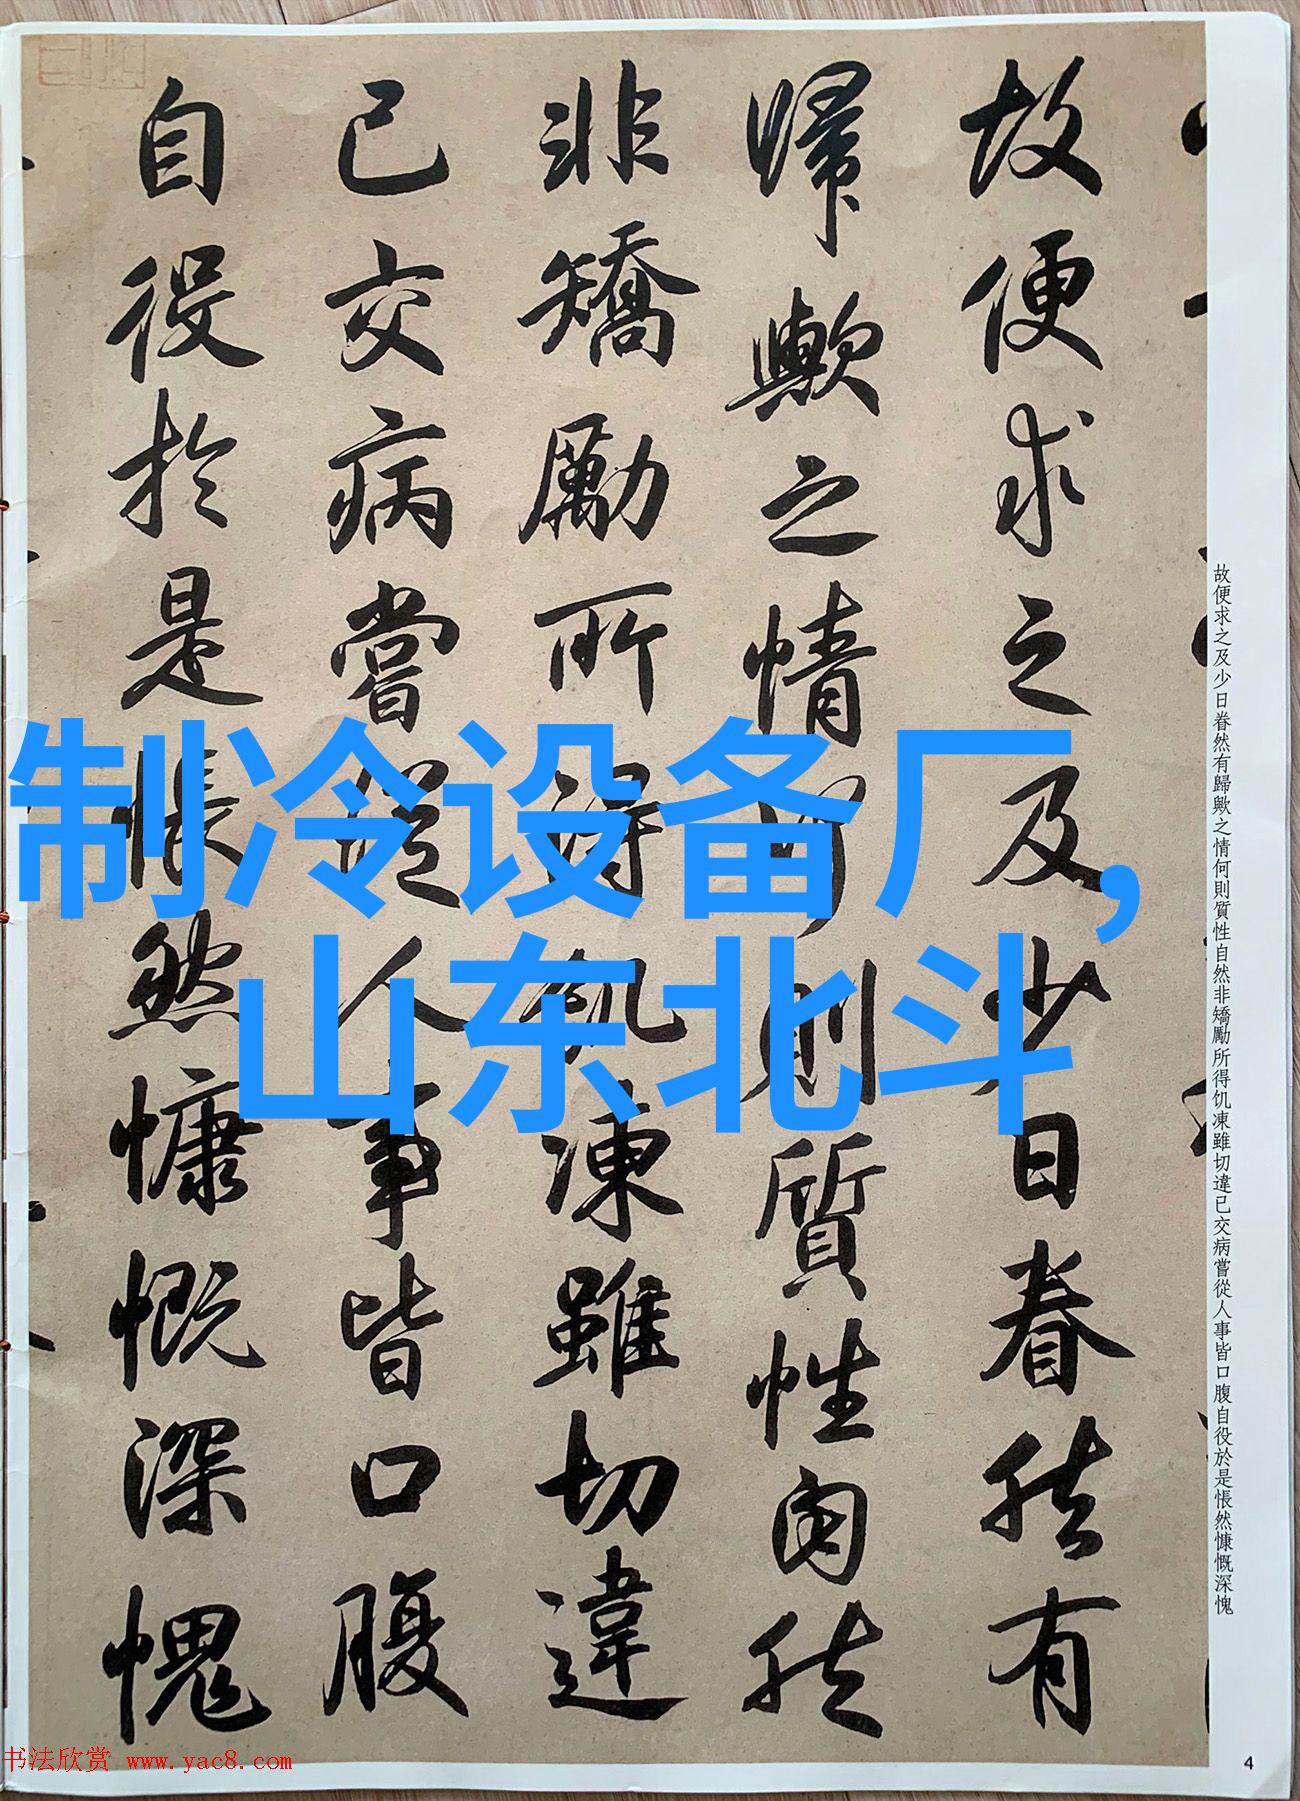 故便求之及少日眷然有
歸歟之情何則質性自然
非矯勵所得飢凍雖切違
已交病嘗從人事皆口腹
自役於是悵然慷慨深愧
故便求之及少日眷然有歸歟之情何則質性自然非矯勵所得饥凍雖切違已交病嘗從人事皆口腹自役於是悵然慷慨深愧
制冷设备厂，
山东北斗
书法欣赏 www.yac8.com
4